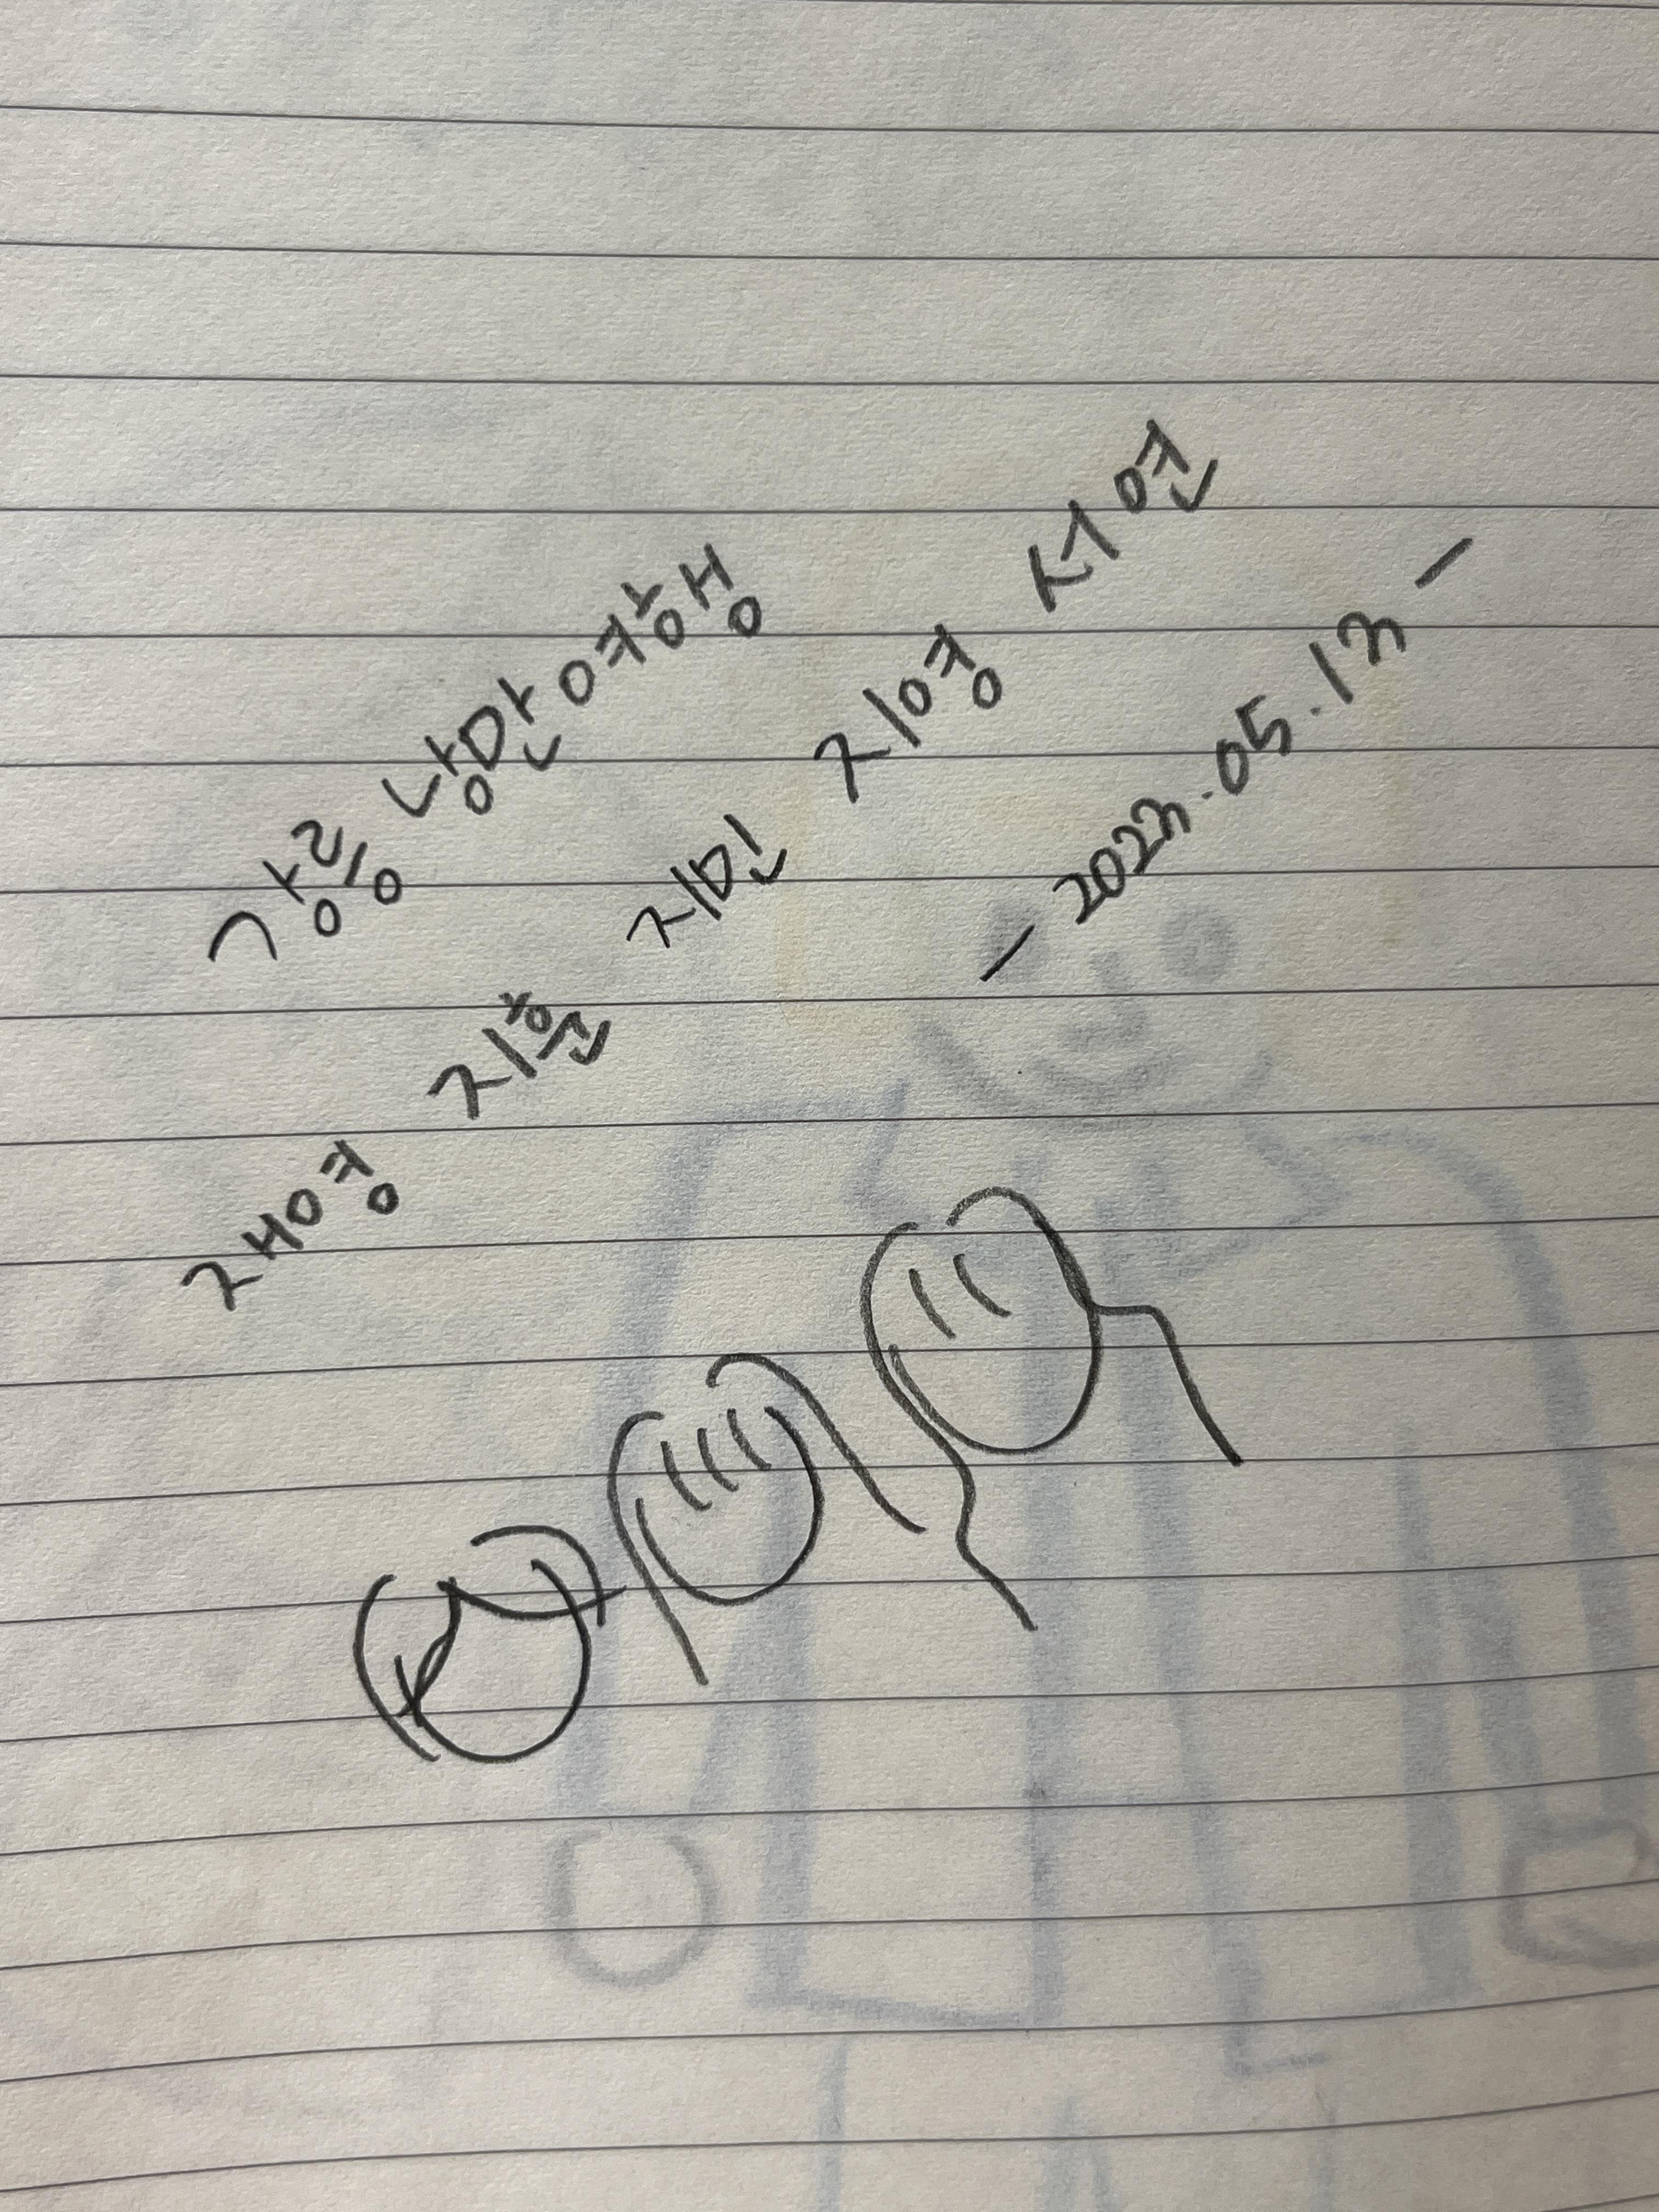 강릉 낭만여행
재영 지훈 지민 지영 서연
- 2023.05.13 -